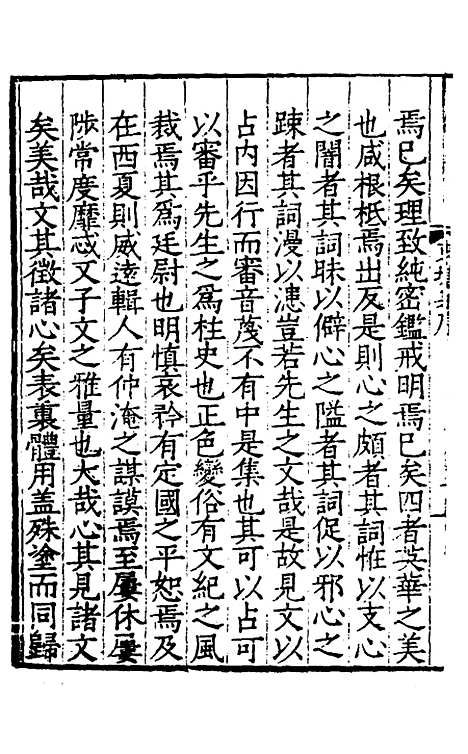 焉已矣理致純密鑑戒明焉已矣四者英華之美
也咸根柢焉出反是則心之頗者其詞惟以支心
之闇者其詞昧以僻心之隘者其詞促以邪心之
踈者其詞漫以漶豈若先生之文哉是故見文以
占内因行而審音蔑不有中是集也其可以占可
以審乎先生之爲柱史也正色變俗有文紀之風
裁焉其爲廷尉也明慎哀矜有定國之平恕焉及
在西夏則威遠輯人有仲淹之謀謨焉至屢休屢
陟常度靡忒又子文之雅量也大哉心其見諸文
矣美哉文其徵諸心矣表裏體用盖殊塗而同歸